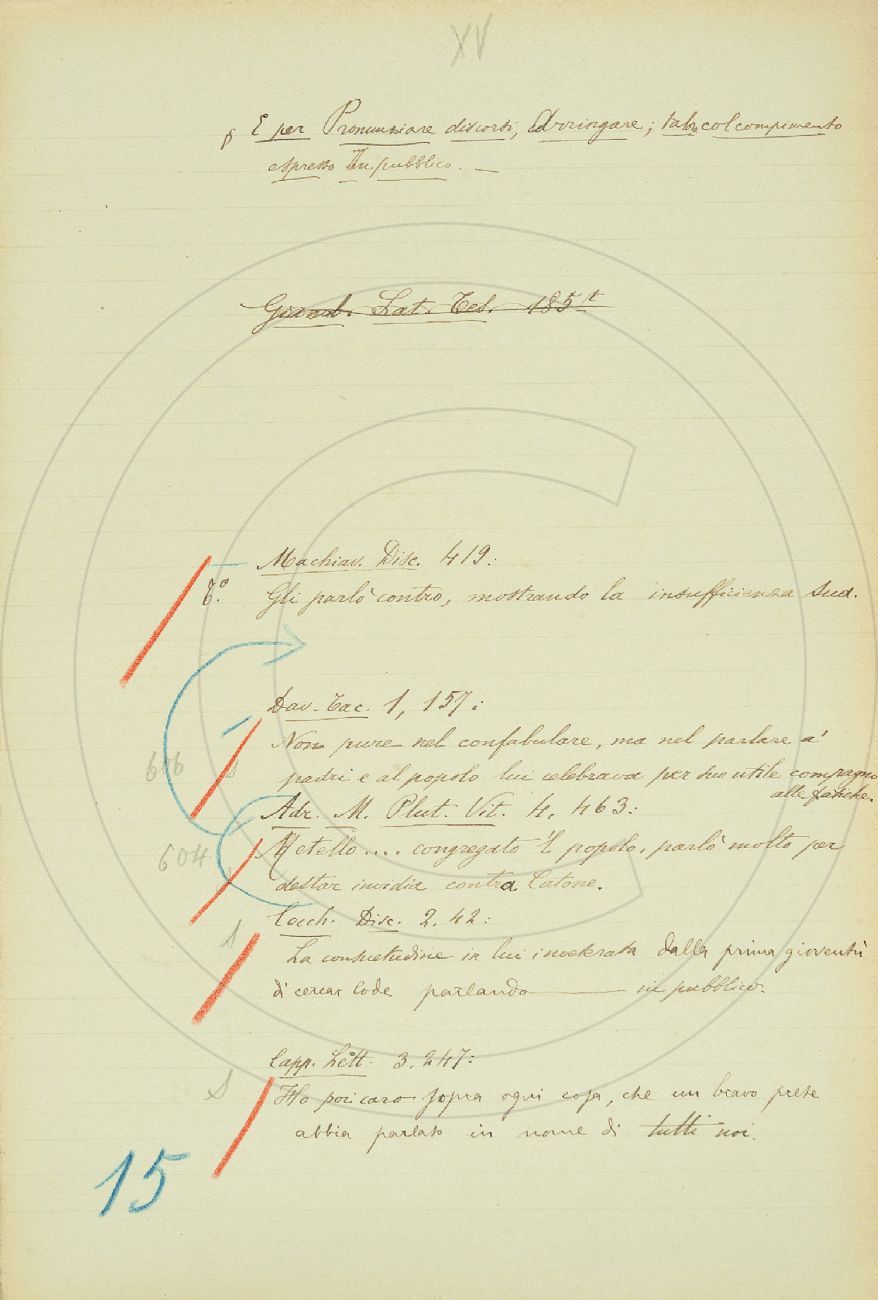 XV
§ E per Pronunziare discorsi, Arringare; talv. col compimento
espresso In pubblico. —
Giamb. Lat. Ted. 185 t
Machiav. Disc. 419:
Gli parlò contro, mostrando la insufficienza sua.
Dav. Tac. 1, 157:
Non pure nel confabulare, ma nel parlare a'
606 S padri e al popolo lui celebrava per suo utile compagno
alle fatiche.
Adr. M. Plut. Vit. 4, 463:
604 Metello .... congregato 'l popolo, parlò molto per
destar invidia contra Catone.
S Cocch. Disc. 2. 42:
La consuetudine in lui inveterata dalla prima gioventù
di cercar lode parlando — in pubblico.
Capp. Lett. 3. 247:
S Ho poi caro sopra ogni cosa, che un bravo prete
abbia parlato in nome di tutti noi.
15